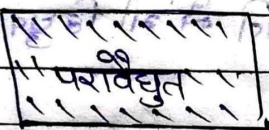 परावैद्युत